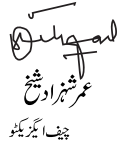 عمر شہزاد شیخ
چیف ایگزیکٹو